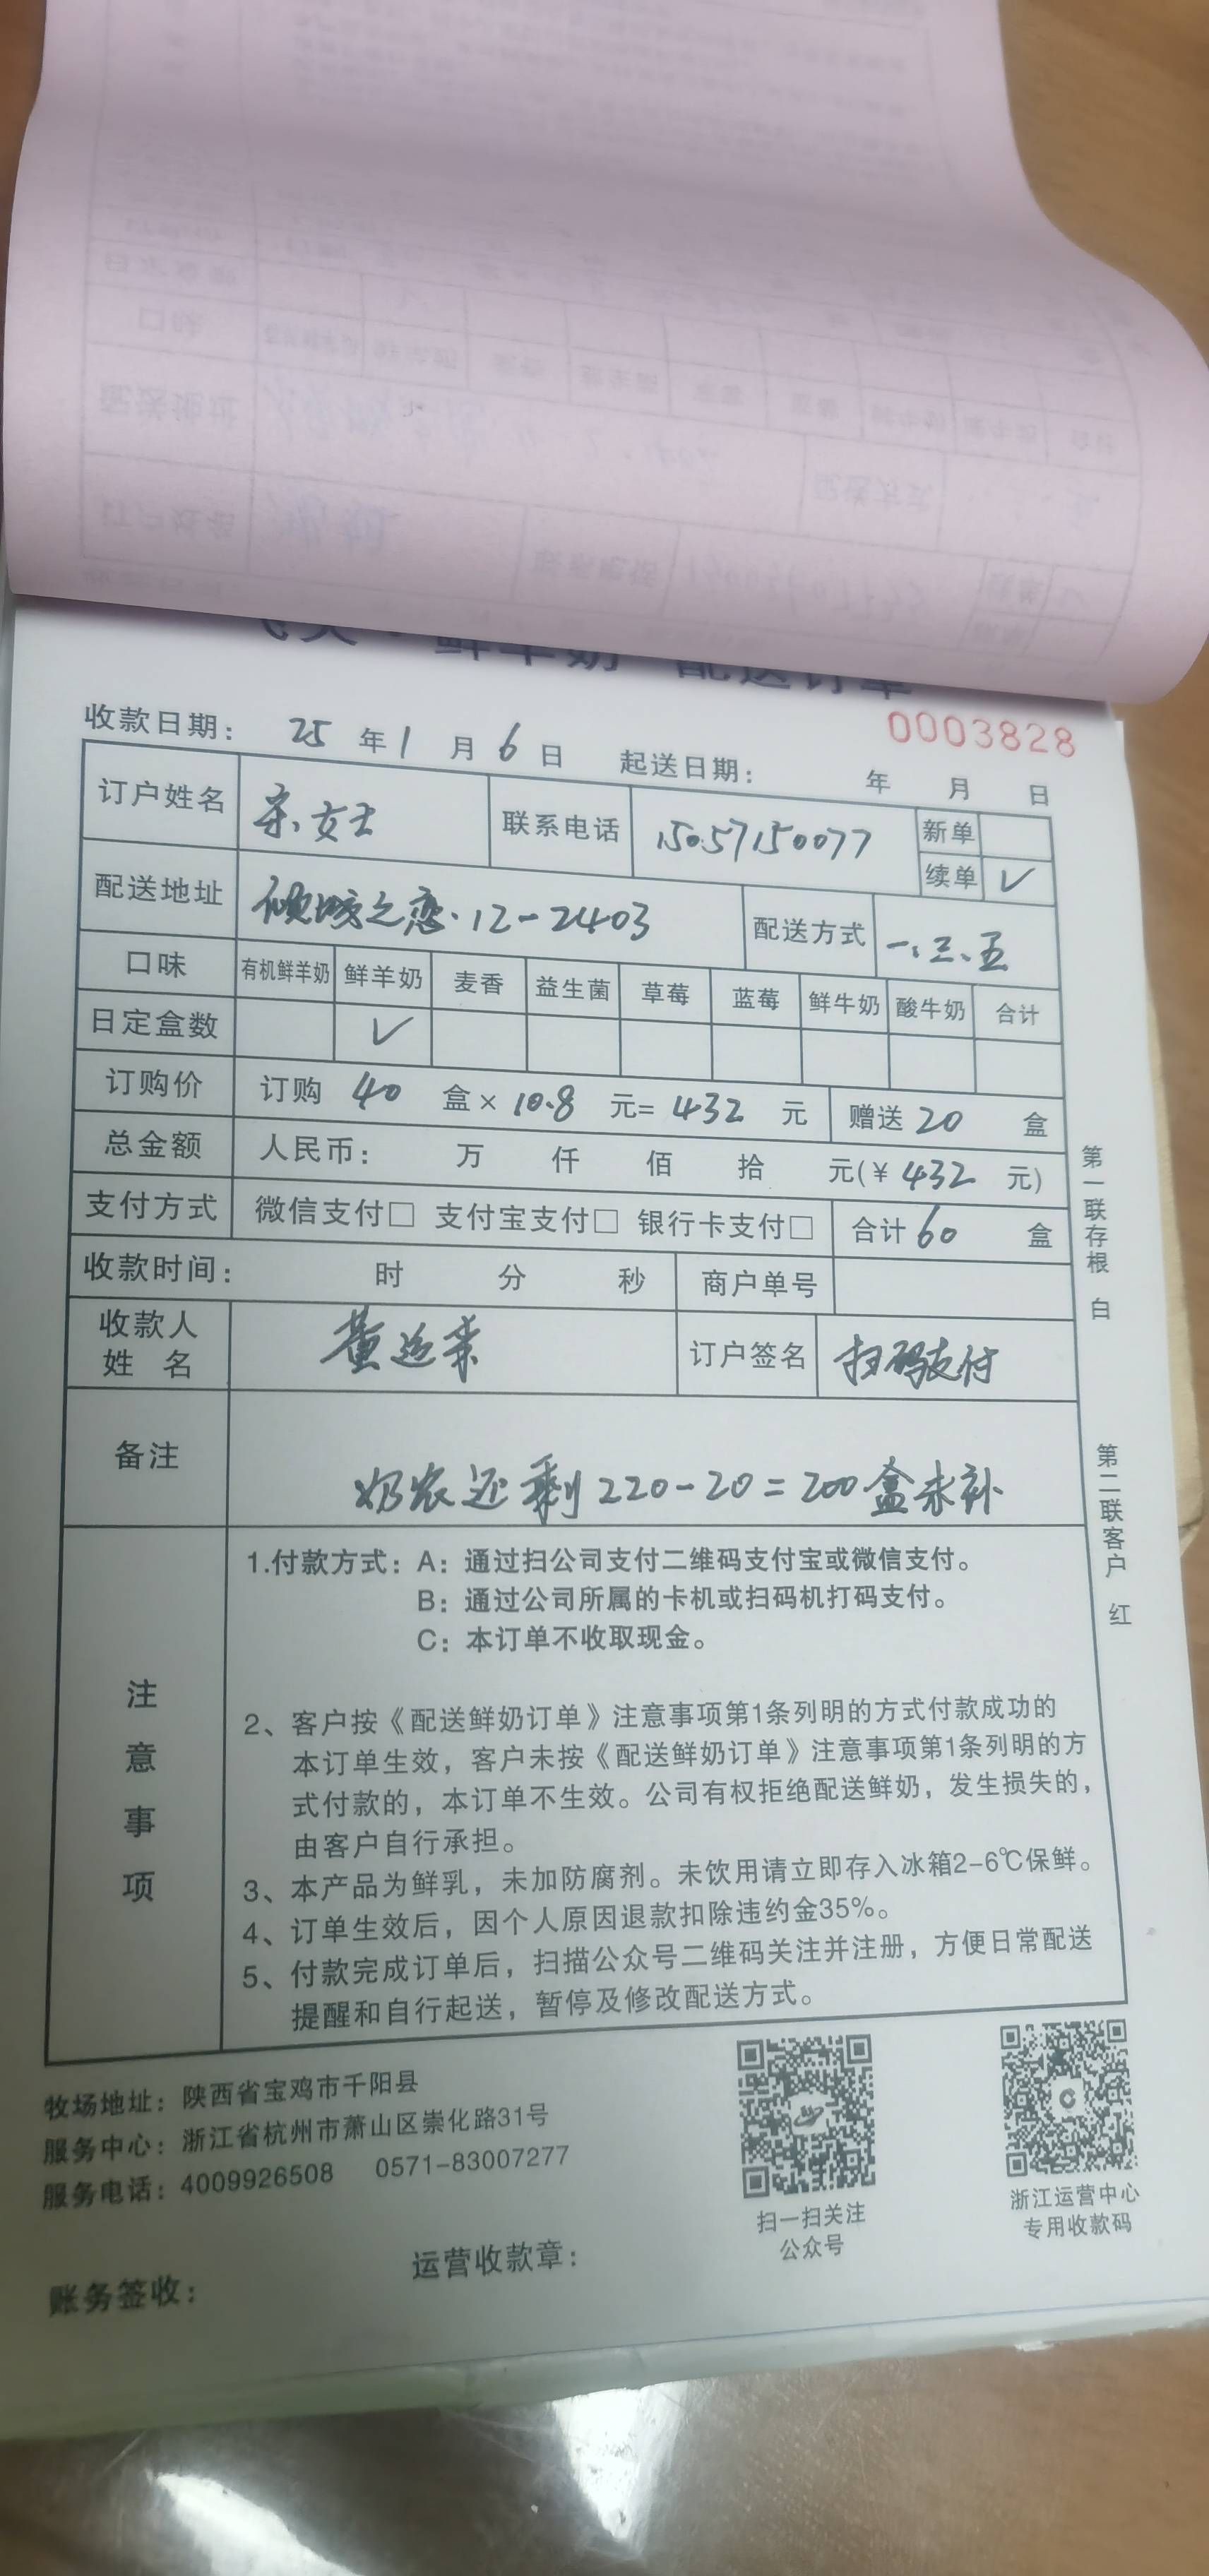 鲜羊奶 配送订单
0003828
收款日期： 25 年 1 月 6 日 起送日期： 年 月 日
订户姓名 女士 联系电话 15057150077 新单
续单 ✓
配送地址 倾城之恋.12-2403 配送方式 一、三、五
口味 有机鲜羊奶 鲜羊奶 麦香 益生菌 草莓 蓝莓 鲜牛奶 酸牛奶 合计
日定盒数 ✓
订购价 订购 40 盒× 10.8 元= 432 元 赠送 20 盒
总金额 人民币： 万 仟 佰 拾 元(¥ 432 元)
支付方式 微信支付□ 支付宝支付□ 银行卡支付□ 合计 60 盒
收款时间： 时 分 秒 商户单号
收款人
姓 名 黄运 订户签名 扫码支付
备注 奶农还剩220-20=200盒未补
注意事项
1.付款方式：A：通过扫公司支付二维码支付宝或微信支付。
B：通过公司所属的卡机或扫码机打码支付。
C：本订单不收取现金。
2、客户按《配送鲜奶订单》注意事项第1条列明的方式付款成功的
本订单生效，客户未按《配送鲜奶订单》注意事项第1条列明的方
式付款的，本订单不生效。公司有权拒绝配送鲜奶，发生损失的，
由客户自行承担。
3、本产品为鲜乳，未加防腐剂。未饮用请立即存入冰箱2-6℃保鲜。
4、订单生效后，因个人原因退款扣除违约金35%。
5、付款完成订单后，扫描公众号二维码关注并注册，方便日常配送
提醒和自行起送，暂停及修改配送方式。
第一联存根 白
第二联客户 红
牧场地址：陕西省宝鸡市千阳县
服务中心：浙江省杭州市萧山区崇化路31号
服务电话：4009926508 0571-83007277
扫一扫关注
公众号
浙江运营中心
专用收款码
账务签收： 运营收款章：